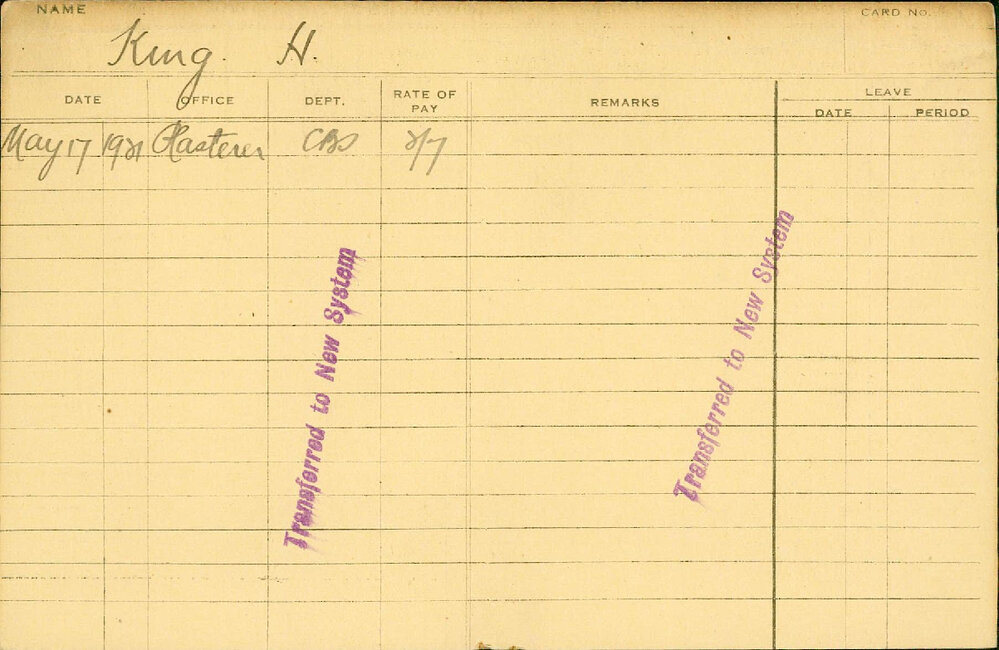 NAME CARD NO.
King. H.
DATE OFFICE DEPT. RATE OF PAY REMARKS LEAVE
DATE PERIOD
May 17 1921 Plasterer CBS 2/7
Transferred to New System
Transferred to New System